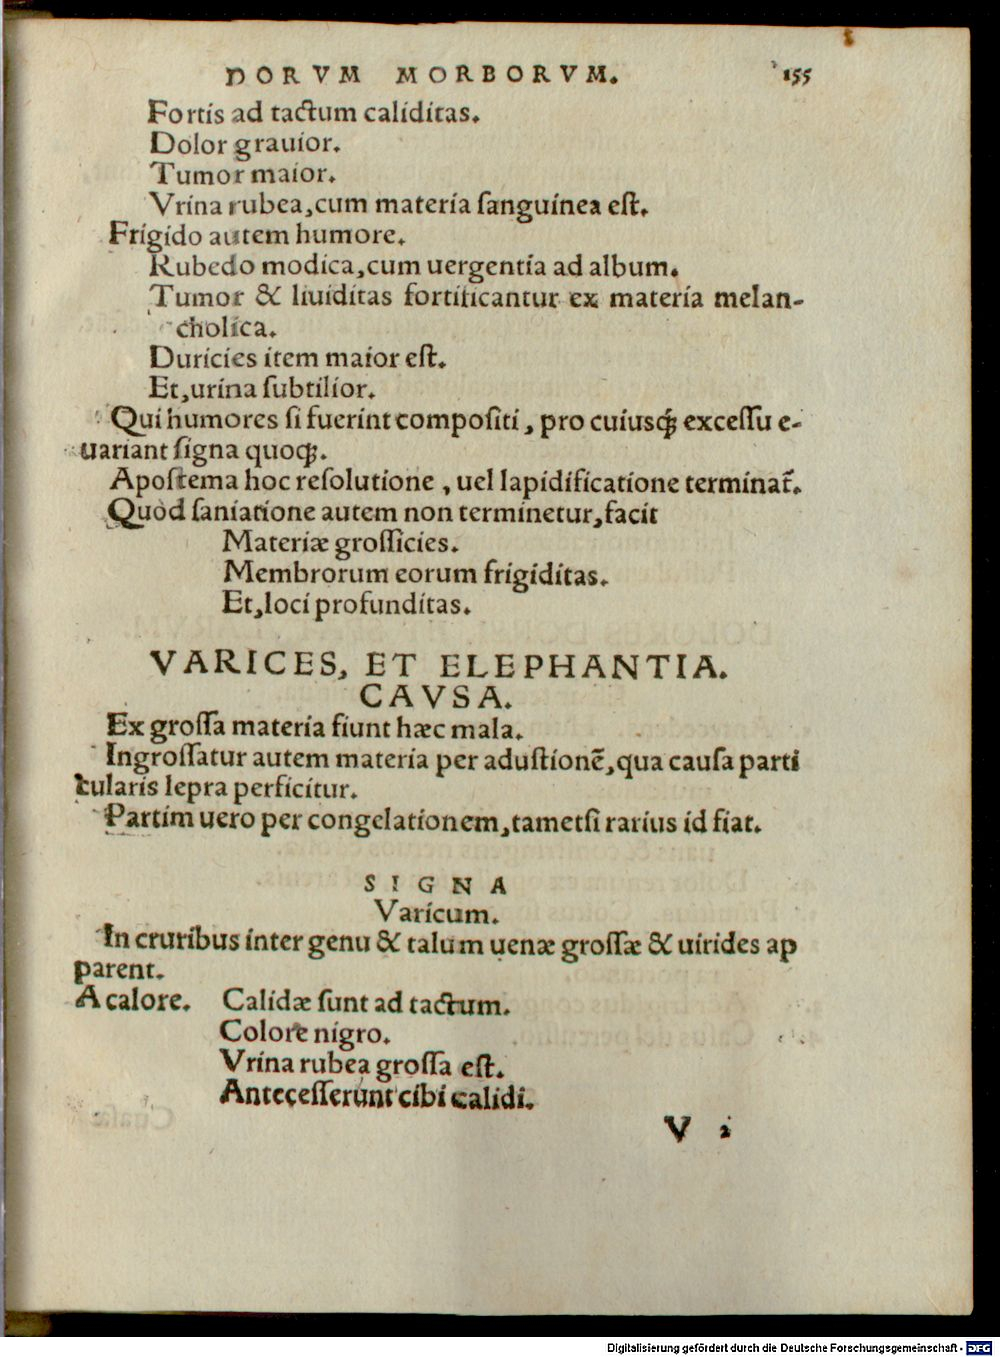 DORVM MORBORVM. 155
Fortis ad tactum caliditas.
Dolor grauior.
Tumor maior.
Vrina rubea, cum materia ſanguinea eſt.
Frigido autem humore.
Rubedo modica, cum uergentia ad album.
Tumor & liuiditas fortificantur ex materia melan-
cholica.
Duricies item maior eſt.
Et, urina ſubtilior.
Qui humores ſi fuerint compoſiti, pro cuiusq̃ exceſſu e-
uariant ſigna quoq̃.
Apoſtema hoc reſolutione, uel lapidificatione terminat̃.
Quòd ſaniatione autem non terminetur, facit
Materiæ groſſicies.
Membrorum eorum frigiditas.
Et, loci profunditas.
VARICES, ET ELEPHANTIA.
CAVSA.
Ex groſſa materia fiunt hæc mala.
Ingroſſatur autem materia per aduſtionẽ, qua cauſa parti
cularis lepra perficitur.
Partim uero per congelationem, tametſi rarius id fiat.
SIGNA
Varicum.
In cruribus inter genu & talum uenæ groſſæ & uirides ap
parent.
A calore. Calidæ ſunt ad tactum.
Colore nigro.
Vrina rubea groſſa eſt.
Anteceſſerunt cibi calidi.
V 2
Digitalisierung gefördert durch die Deutsche Forschungsgemeinschaft - DFG